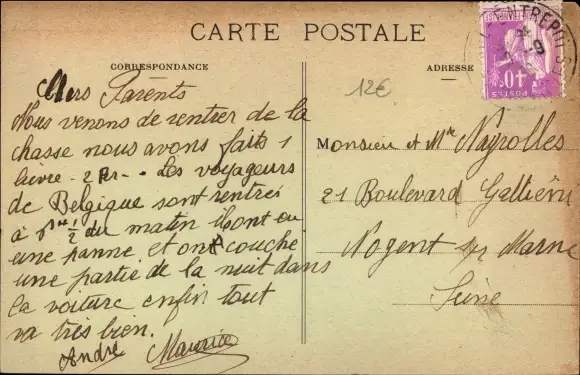 CARTE POSTALE
CORRESPONDANCE
Chers Parents
Nous venons de rentrer de la
chasse nous avons faits 1
lievre - 2 Per - . Les voyageurs
de Belgique sont rentrés
à 1/2 du matin ils ont eu
une panne, et ont couché
une partie de la nuit dans
la voiture enfin tout
va très bien.
André Maurice
12€
ADRESSE
ENTREPOT
POSTES
40c
Monsieur et Me Nayrolles
21 Boulevard Gallieni
Nogent sur Marne
Seine